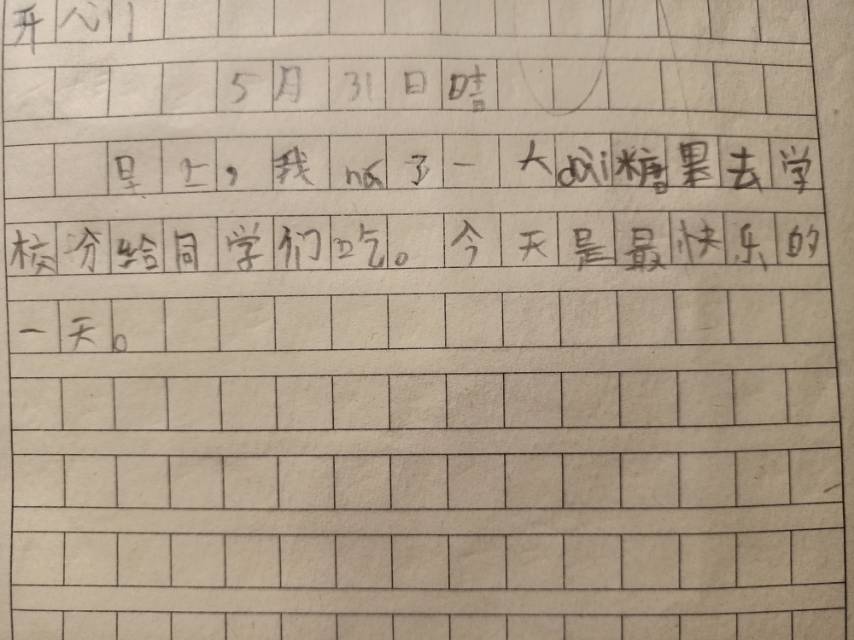 开心！
5月31日晴
早上，我ná了一大dài糖果去学
校分给同学们吃。今天是最快乐的
一天。